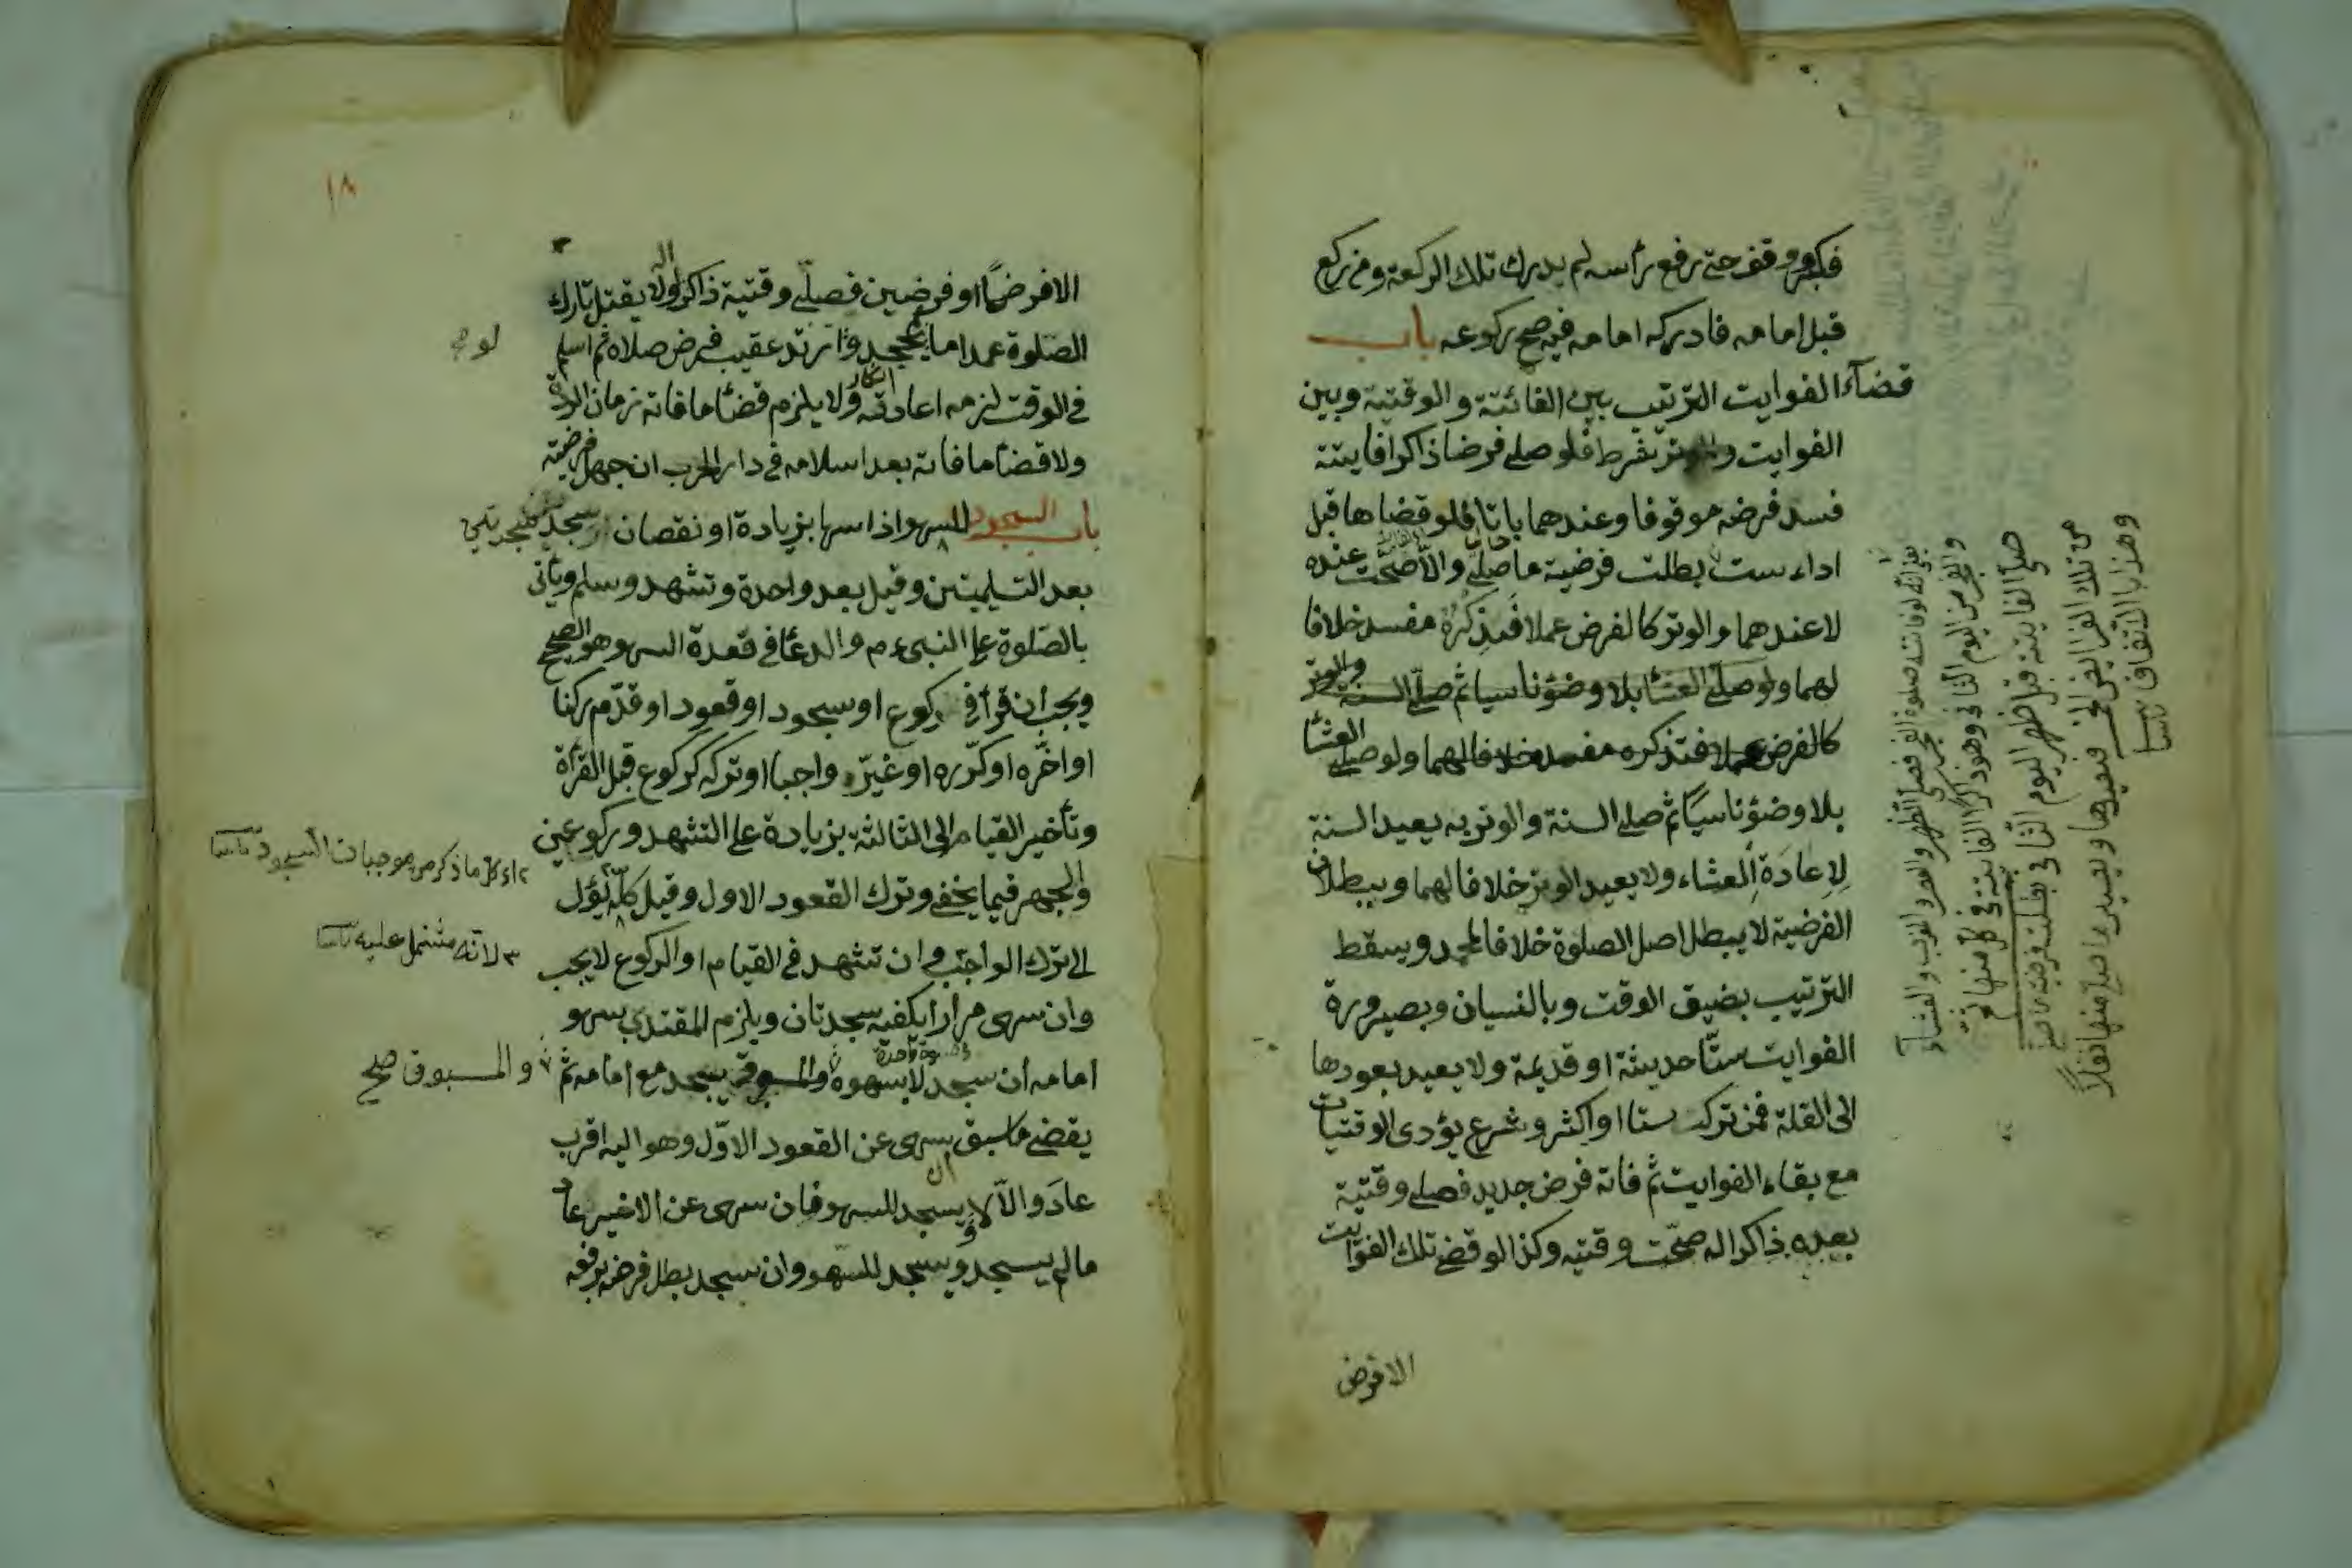 فكبر ووقف حتى رفع رأسه لم يدرك تلك الركعة ومن ركع
قبل امامه فادركه امامه فيه صح ركوعه باب
قضآء الفوايت الترتيب بين الفائتة والوقتية وبين
الفوايت والوتر شرط فلو صلى فرضا ذاكرا فايتة
فسد فرضه موقوفا وعندهما باتا فلو قضاها قبل
اداء ست بطلت فرضية ما صلى والا صحت عنده
لا عندهما والوتر كالفرض عملا فذكره مفسد خلافا
لهما ولو صلى العشا بلا وضؤ ناسيا ثم صلى السنة والوتر
كالفرض عملا فتذكره مفسد خلافا لهما ولو صلى العشا
بلا وضؤ ناسيا ثم صلى السنة والوتر به يعيد السنة
لاعادة العشاء ولا يعيد الوتر خلافا لهما وببطلان
الفرضية لا يبطل اصل الصلوة خلافا لمحمد ويسقط
الترتيب بضيق الوقت وبالنسيان وبصيرورة
الفوايت ستا حديثة او قديمة ولا يعيد بعودها
الى القلة فمن ترك ستا او اكثر وشرع يؤدى الوقتيات
مع بقاء الفوايت ثم فاته فرض جديد فصلى وقتية
بعده ذاكرا له صحت وقتيه وكذا لو قضى تلك الفوايت
الا فرض
وهذا بالاتفاق
١٨
الا فرضا او فرضين فصلى وقتية ذاكرا له ولا يقتل تارك
الصلوة عمدا ما لم يجحد ولو ارتد عقيب فرض صلاه ثم اسلم
في الوقت لزمه اعادته ولا يلزم قضأ ما فاته زمان الردة
ولا قضأ ما فاته بعد اسلامه في دار الحرب ان جهل فرضيته
باب السجود للسهو اذا سها بزيادة او نقصان سجد سجدتين
بعد التسليمتين وقيل بعد واحدة وتشهد وسلم ويأتى
بالصلوة على النبى ءم والدعا في قعدة السهو هو الصحيح
ويجب ان قرأ في ركوع او سجود او قعود او قدم ركنا
او اخره او كرره او غير واجبا او تركه كركوع قبل القرأة
وتأخير القيام الى الثالثة بزيادة على التشهد وركوعين
والجهر فيما يخفى وترك القعود الاول وقيل كله يؤل
الى ترك الواجب وان تشهد في القيام او الركوع لا يجب
وان سهى مرارا يكفيه سجدتان ويلزم المقتدي بسهو
امامه ان سجد لا بسهوه والمسبوق يسجد مع امامه ثم
يقضى ما سبق سهى عن القعود الاول وهو اليه اقرب
عاد والا لا ويسجد للسهو فان سهى عن الاخير عاد
مالم يسجد ويسجد للسهو وان سجد بطل فرضه برفعه
لو صح
اى كل ما ذكر من موجبات السجود
٣ لانه مشتمل عليه
والمسبوق صح